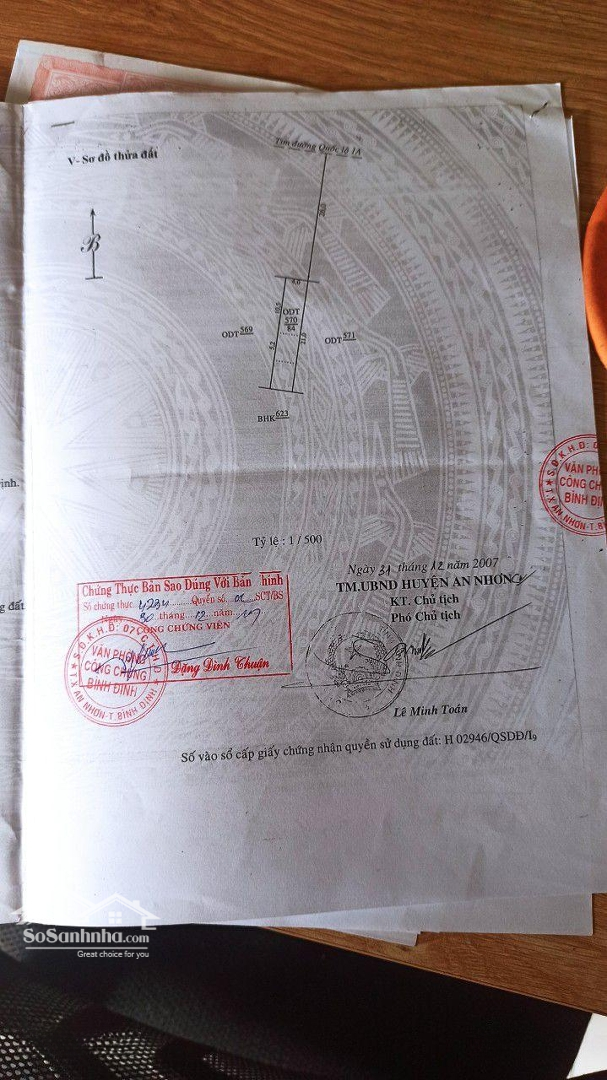 V- Sơ đồ thửa đất
Tim đường Quốc lộ 1A
20,0
B
4,0
ODT
570
84
21,0
5,2
ODT 569
ODT 571
BHK 623
ịnh.
g đất
Tỷ lệ : 1 / 500
Ngày 31 tháng 12 năm 2007
TM.UBND HUYỆN AN NHƠN
KT. Chủ tịch
Phó Chủ tịch
Lê Minh Toán
Chứng Thực Bản Sao Đúng Với Bản hính
Số chứng thực 4234 Quyển số 01 SCT/BS
Ngày 30 tháng 12 năm
CÔNG CHỨNG VIÊN
Đặng Đình Chuân
S.Đ.K.H.Đ: 07
VĂN PHÒNG
CÔNG CHỨNG
BÌNH ĐỊNH
TX AN NHƠN-T.BÌNH ĐỊNH
S.Đ.K.H.Đ: 0
VĂN PH
CÔNG CH
BÌNH ĐỊN
TX AN NHƠN-T.B
Số vào sổ cấp giấy chứng nhận quyền sử dụng đất: H 02946/QSDĐ/I9
SoSanhnha.com
Great choice for you